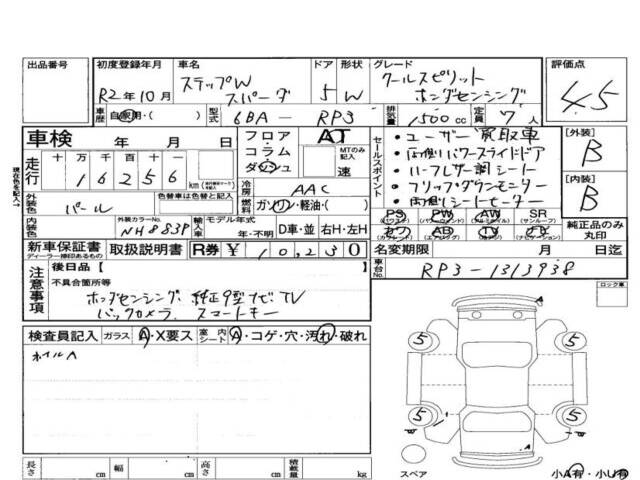 出品番号
初度登録年月
R2年10月
車名
ステップW
スパーダ
ドア
5
形状
W
グレード
クールスピリット
ホンダセンシング
評価点
4.5
車歴
自家用・( )
型式
6BA- RP3
排気量 1500cc
定員 7人
車検 年 月 日
フロア・
コラム・
ダッシュ
AT
MTのみ記入
速
セールスポイント
・ユーザー買取車
・両側パワースライドドア
・ハーフレザー調シート
・フリップダウンモニター
・両側シートヒーター
[外装]
B
[内装]
B
走行
十 万 千 百 十 一
1 6 2 5 6
km
冷房
AAC
燃料
ガソリン・軽油・( )
外装色
パール
色替車は色替と記入
内装色
外装カラーNo.
NH883P
輸入車
モデル年式
年・不明
D車・並
右H・左H
PS PW AW SR
(サンルーフ)
純正品のみ
丸印
新車保証書
ディーラー捺印あるもの
取扱説明書
R券 ¥ 10,230
名変期限 月 日迄
車台No.
RP3-1313938
注意事項
後日品 [ ]
不具合箇所等
ホンダセンシング 純正9型ナビ TV
バックカメラ スマートキー
ロック車
検査員記入
ガラス
A・X要ス
室内シート
A・コゲ・穴・汚れ・破れ
ホイルA
5 5
5 5
A
A
長さ cm
幅 cm
高さ cm
積載量 kg
スペア
小A有・小U有